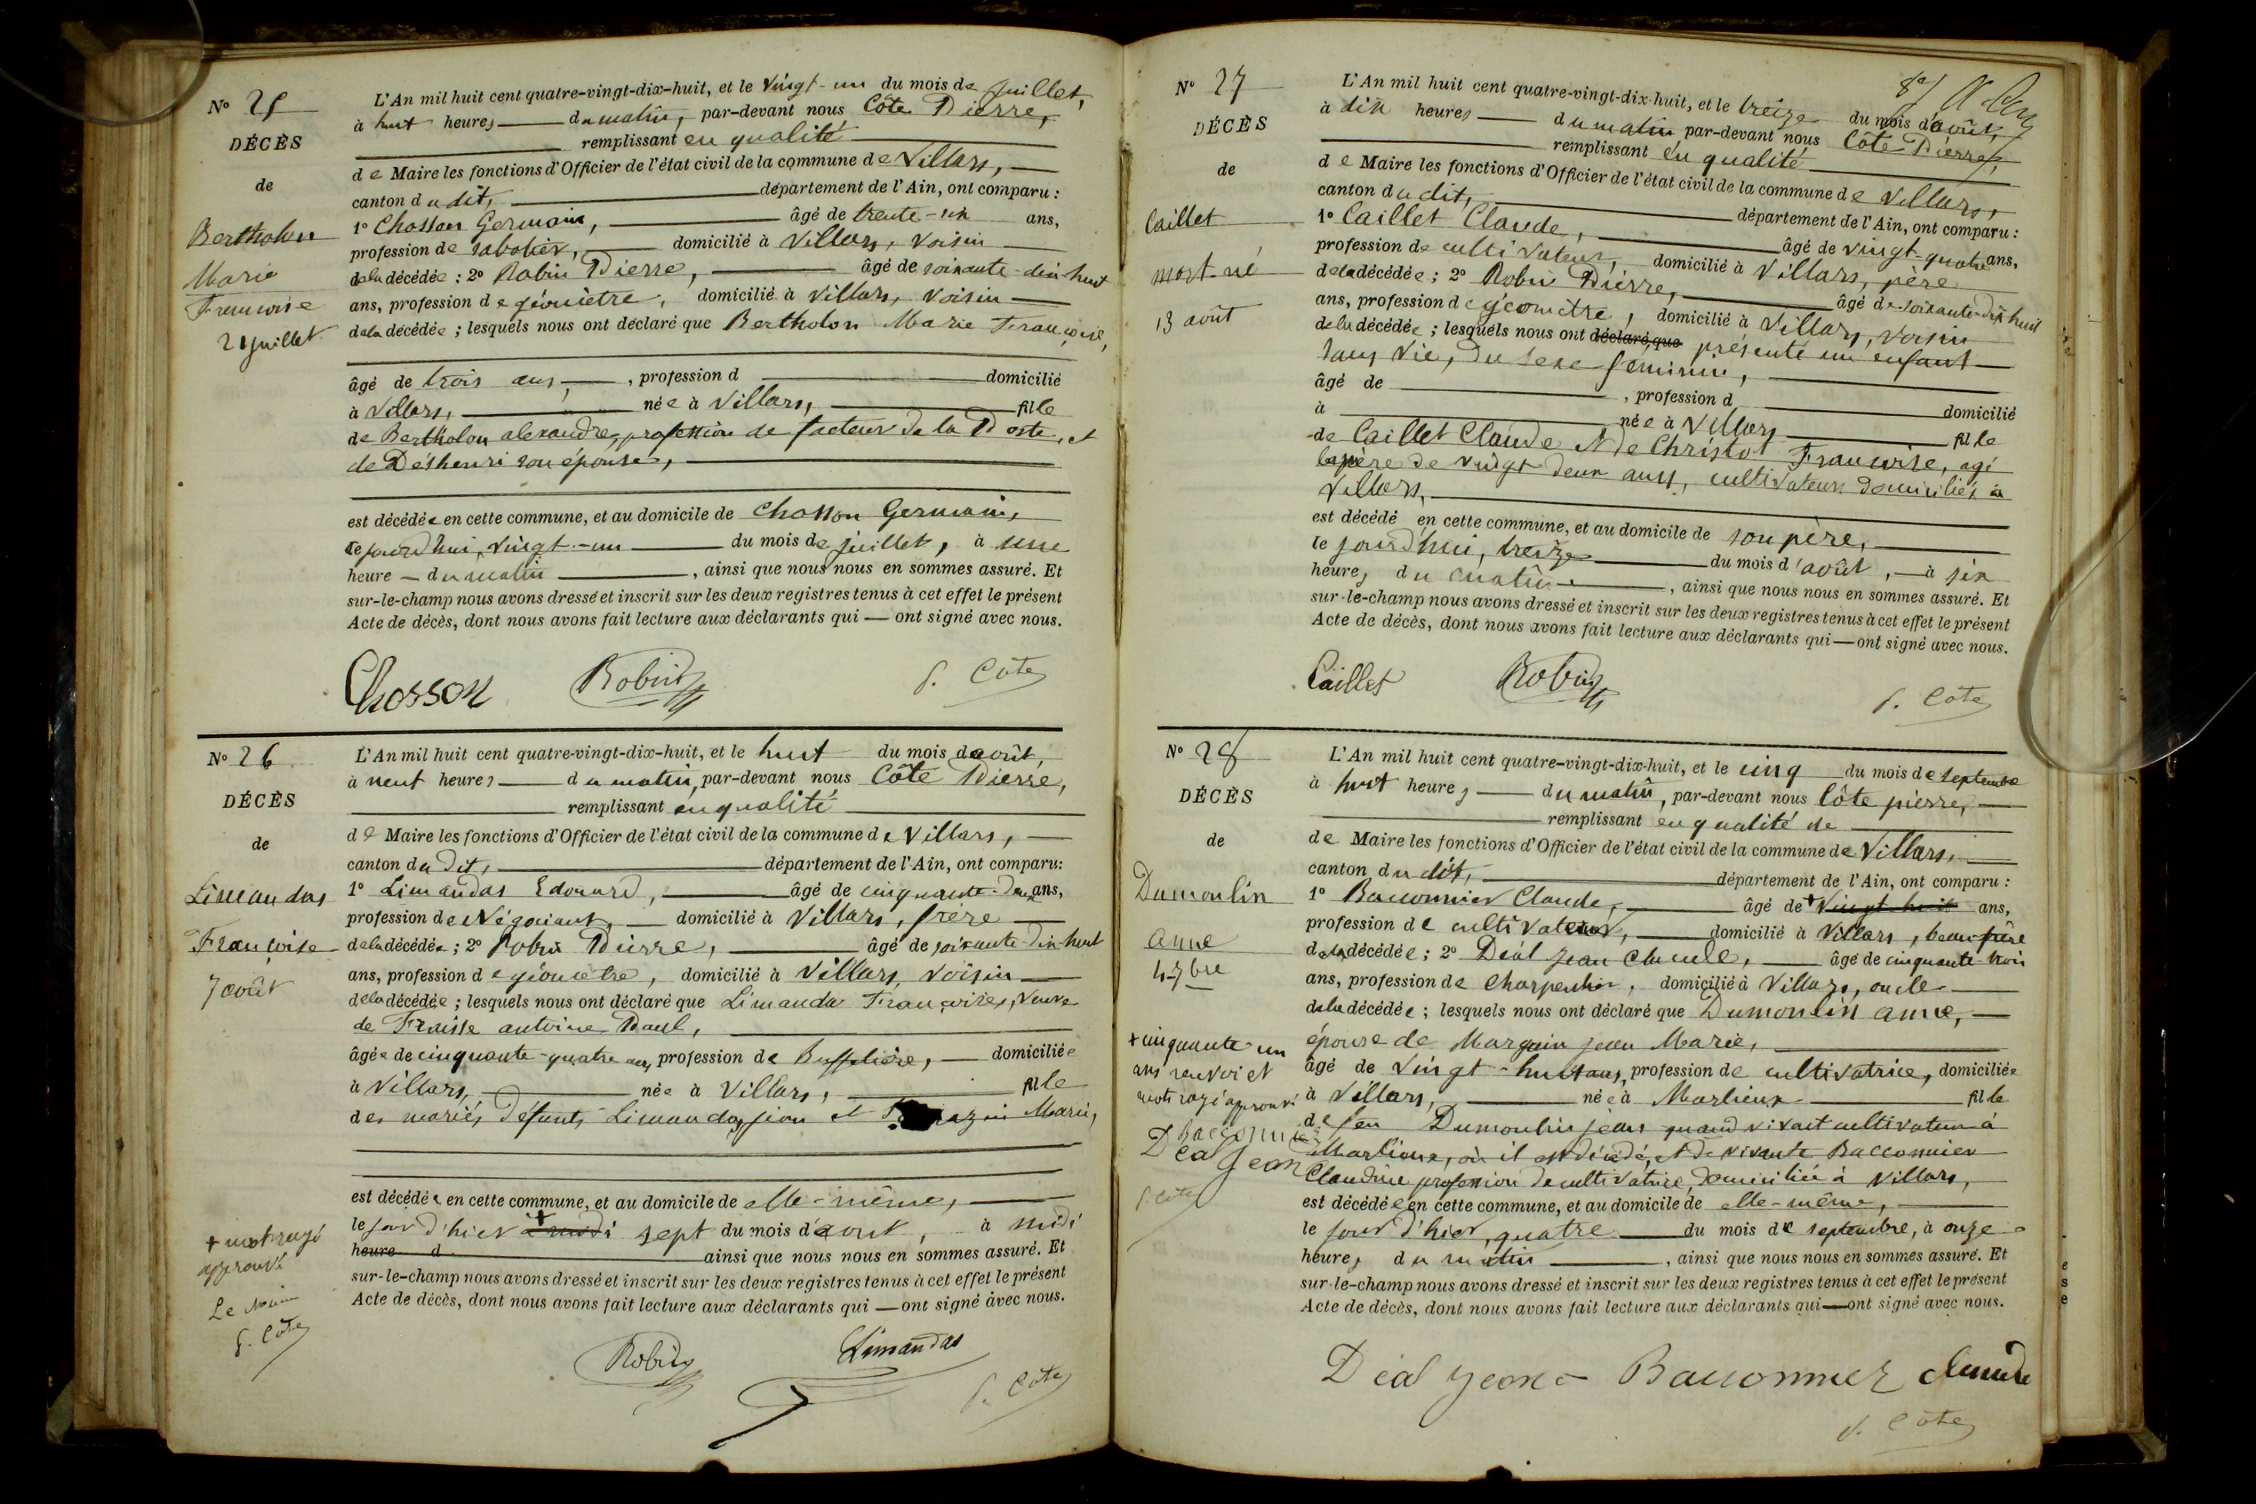 N° 25
DÉCÈS
de
Bertholon
Marie
Françoise
21 juillet
L'An mil huit cent quatre-vingt-dix-huit, et le vingt-un du mois de juillet,
à huit heures du matin, par-devant nous Côte Pierre,
remplissant en qualité
de Maire les fonctions d'Officier de l'état civil de la commune de Villars,
canton dudit, département de l'Ain, ont comparu :
1° Chosson Germain, âgé de trente-six ans,
profession de sabotier, domicilié à Villars, voisin
de la décédée ; 2° Robin Pierre, âgé de soixante-dix-huit
ans, profession de géomètre, domicilié à Villars, voisin
de la décédée ; lesquels nous ont déclaré que Bertholon Marie Françoise,
âgé de trois ans, profession d domicilié
à Villars, née à Villars, fille
de Bertholon alexandre, profession de facteur de la Poste, et
de Deshenri son épouse,
est décédée en cette commune, et au domicile de Chosson Germain,
le jourd'hui, vingt-un du mois de juillet, à une
heure du matin, ainsi que nous nous en sommes assuré. Et
sur-le-champ nous avons dressé et inscrit sur les deux registres tenus à cet effet le présent
Acte de décès, dont nous avons fait lecture aux déclarants qui — ont signé avec nous.
Chosson Robin P. Côte
N° 26
DÉCÈS
de
Limandas
Françoise
7 août
L'An mil huit cent quatre-vingt-dix-huit, et le huit du mois d'août,
à neuf heures du matin, par-devant nous Côte Pierre,
remplissant en qualité
de Maire les fonctions d'Officier de l'état civil de la commune de Villars,
canton dudit, département de l'Ain, ont comparu :
1° Limandas Edouard, âgé de cinquante-deux ans,
profession de Négociant, domicilié à Villars, frère
de la décédée ; 2° Robin Pierre, âgé de soixante-dix-huit
ans, profession de géomètre, domicilié à Villars, voisin
de la décédée ; lesquels nous ont déclaré que Limandas Françoise, Veuve
de Fraisse antoine Paul,
âgée de cinquante-quatre ans, profession de domiciliée
à Villars, née à Villars, fille
des mariés défunts Limandas jean et Marie,
est décédée en cette commune, et au domicile de elle-même,
le jour d'hier + à midi sept du mois d'août, à midi
heure d ainsi que nous nous en sommes assuré. Et
sur-le-champ nous avons dressé et inscrit sur les deux registres tenus à cet effet le présent
Acte de décès, dont nous avons fait lecture aux déclarants qui — ont signé avec nous.
+ mot rayé
approuvé
Le Maire
P. Côte
Robin Limandas P. Côte
N° 27
DÉCÈS
de
Caillet
mort-né
13 août
L'An mil huit cent quatre-vingt-dix-huit, et le treize du mois d'août,
à dix heures du matin par-devant nous Côte Pierre,
remplissant en qualité
de Maire les fonctions d'Officier de l'état civil de la commune de Villars,
canton dudit, département de l'Ain, ont comparu :
1° Caillet Claude, âgé de vingt-quatre ans,
profession de cultivateur, domicilié à Villars, père
de la décédée ; 2° Robin Pierre, âgé de soixante-dix-huit
ans, profession de géomètre, domicilié à Villars, voisin
de la décédée ; lesquels nous ont déclaré que présenté un enfant
sans vie, du sexe féminin,
âgé de , profession d domicilié
à née à Villars fille
de Caillet Claude et de Christot Françoise, agé
la mère de vingt deux ans, cultivateurs domiciliés à
Villars,
est décédé en cette commune, et au domicile de son père,
le jourd'hui, treize du mois d'août, à six
heures du matin, ainsi que nous nous en sommes assuré. Et
sur-le-champ nous avons dressé et inscrit sur les deux registres tenus à cet effet le présent
Acte de décès, dont nous avons fait lecture aux déclarants qui — ont signé avec nous.
Caillet Robin P. Côte
N° 28
DÉCÈS
de
Dumoulin
anne
4 7bre
L'An mil huit cent quatre-vingt-dix-huit, et le cinq du mois de septembre
à huit heures du matin, par-devant nous Côte pierre,
remplissant en qualité de
de Maire les fonctions d'Officier de l'état civil de la commune de Villars,
canton dudit, département de l'Ain, ont comparu :
1° Bacconnier Claude, âgé de + vingt huit ans,
profession de cultivateur, domicilié à Villars, beau-frère
de la décédée ; 2° Déal jean claude, âgé de cinquante-trois
ans, profession de charpentier, domicilié à Villars, oncle
de la décédée ; lesquels nous ont déclaré que Dumoulin anne,
épouse de Marguin jean Marie,
âgé de vingt-huit ans, profession de cultivatrice, domiciliée
à Villars, née à Marlieux fille
de feu Dumoulin jean quand vivait cultivateur à
Marlieux, où il est décédé, et de vivante Bacconnier
Claudine profession de cultivatrice, domiciliée à Villars,
est décédée en cette commune, et au domicile de elle-même,
le jour d'hier, quatre du mois de septembre, à onze
heures du matin, ainsi que nous nous en sommes assuré. Et
sur-le-champ nous avons dressé et inscrit sur les deux registres tenus à cet effet le présent
Acte de décès, dont nous avons fait lecture aux déclarants qui — ont signé avec nous.
+ cinquante-un
ans renvoi et
mots rayé approuvé
Bacconnier
Déal Jean
P. Côte
Déal Jean Bacconnier claude
P. Côte